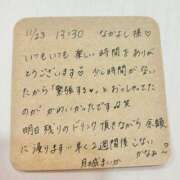 11/23 17:30 なかよし様♡
いつもいつも楽しい時間をありが
とうございます♡ 少し時間がない
たから「緊張する♡」とおっしゃてたの
がかめいかったです笑
明日残りのドリンク頂きながら余韻
に浸ります!早く2週間位しない
かなぁ〜♡